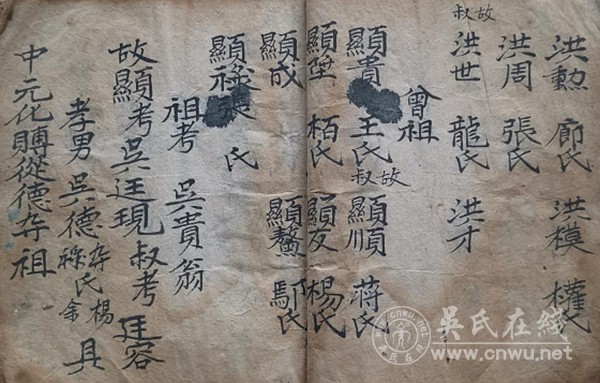 洪勲 廊氏 洪模 權氏
洪周 張氏
故
叔
洪世 龍氏 洪才
曾祖
顯貴 王氏
故
叔
顯順 蔣氏
顯堂 柏氏 顯友 楊氏
顯成 顯鰲 鄢氏
顯祿 張氏
祖考 吳貴翁
故顯考吳廷現 叔考 廷容
孝男 吳德存 楊氏
祿 余
具
中元化賻從德存祖
吳氏在线
www.cnwu.net